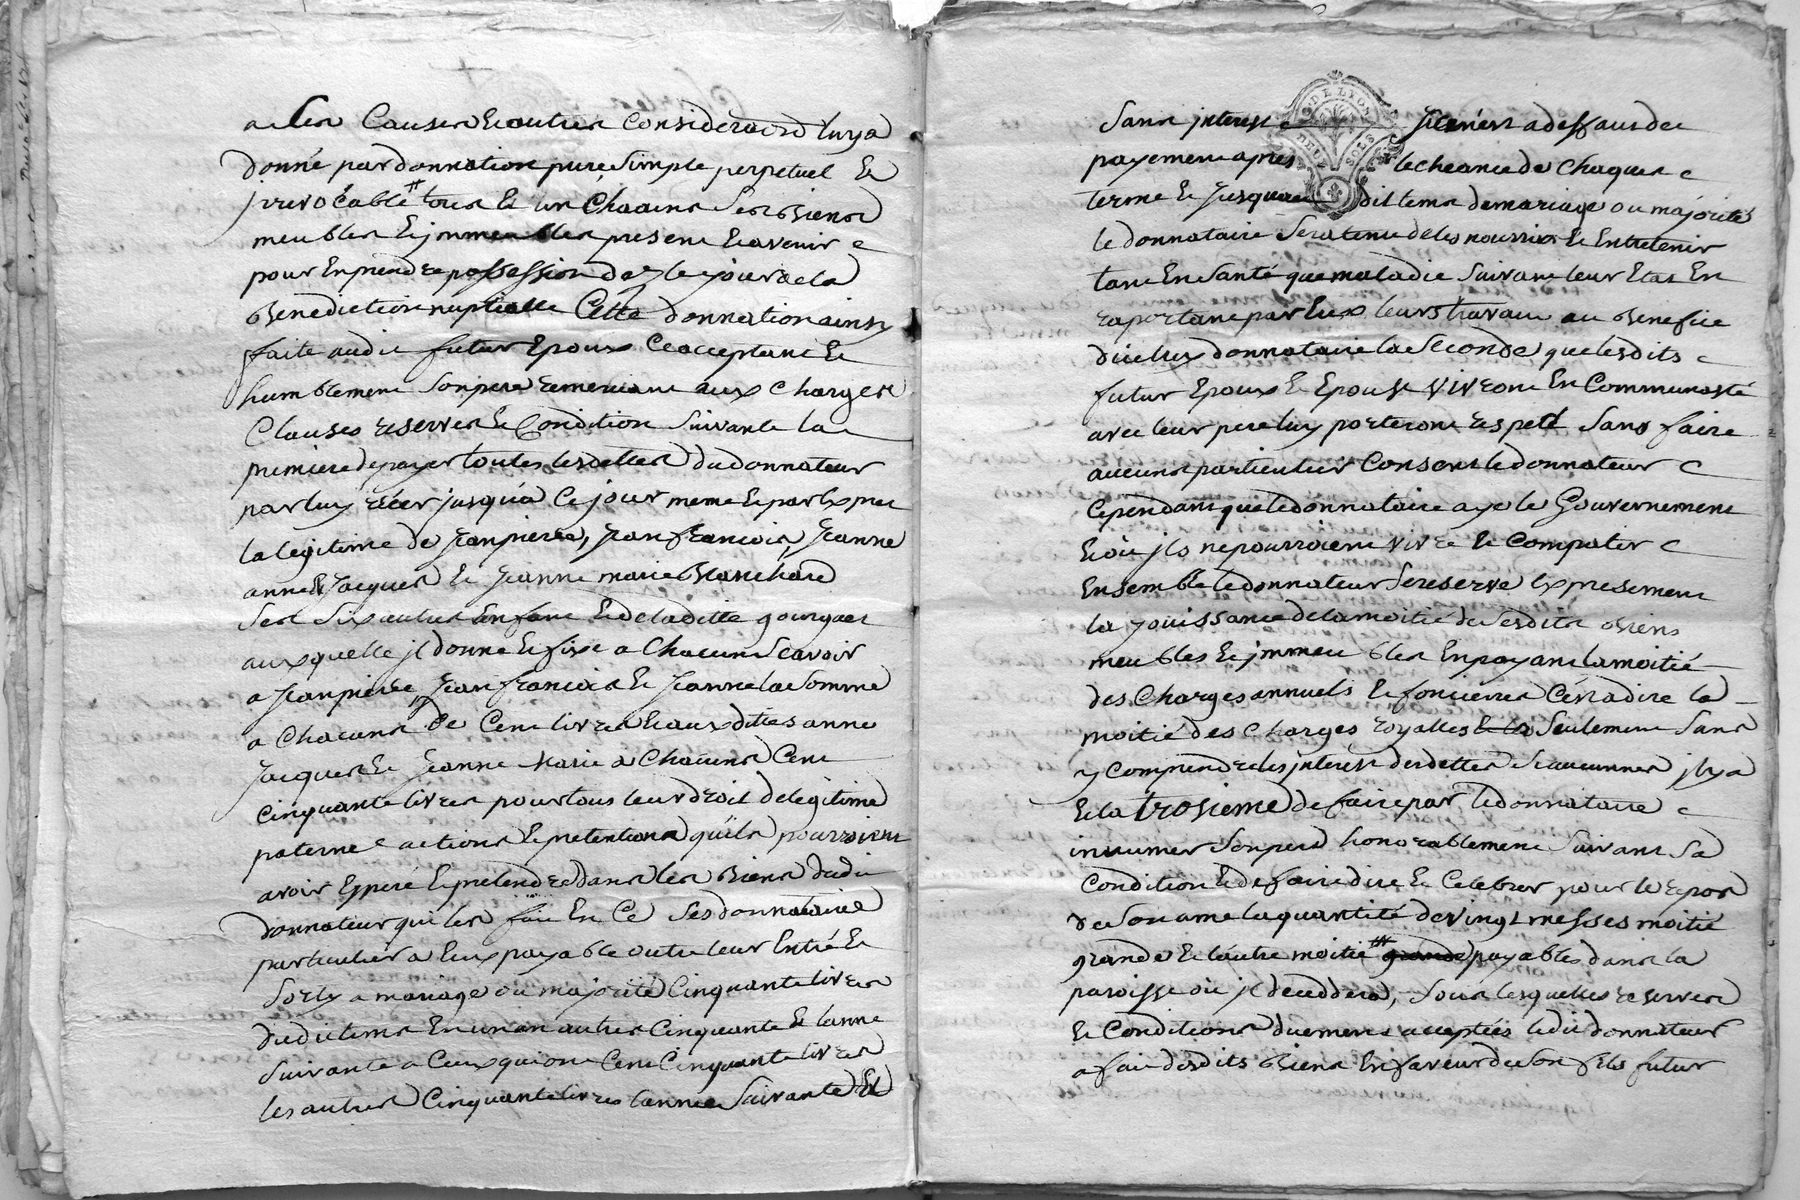 a Ces Causes et autres Considerations luy a
donné par donnation pure Simple perpetuel Et
jrrevocable tous Et un Chacuns Ses Biens
meubles Et jmmeubles present Et avenir
pour En prendre possession dez le jour de la
Benediction nuptialle Cette donnation ainsy
faite audit futur Epoux Ce acceptant Et
humblement Son pere remerciant aux Charges
Clauses reserves Et Condition Suivante la
premiere de payer toutes les dettes du donnateur
par luy créer jusqu'a Ce jour meme Et par Exprez
la legitime de Jean pierre, Jean francois, Jeanne
anne Jacques Et Jeanne marie Blanchard
Ses Six autres Enfant Et de ladite
auxquelle jl donne Et fixe a Chacuns Scavoir
a Jean pierre Jean francois Et Jeanne la Somme
a Chacuns de Cent livres Et aux dittes anne
Jacques Et Jeanne Marie a Chacuns Cent
Cinquante livres pour tous leur droit de legitime
paternel actions Et pretentions qu'ils pourroient
avoir Esperé Et pretendre dans les Biens dudit
donnateur qui les fait En Ce Ses donnataire
particulier a Eux payable outre leur Entré Et
Sorty a mariage ou majorité Cinquante livres
dudit tems En un an autres Cinquante Et l'anné
Suivante a Ceux qui ont Cent Cinquante livres
les autres Cinquante livres l'année Suivante Et
Sans jnterest Si Cén'est a deffaut de
payement apres lecheance de Chaques
terme Et Jusquau dit tems de mariage ou majorité
le donnataire Sera tenu de les nourrir Et Entretenir
tant En Santé que maladie Suivant leur Etat En
raportant par Eux leurs travau au Benefice
dicelux donnataire la Seconde que lesdits
futur Epoux Et Epouse vivront En Communoté
avec leur pere luy porteront respect Sans faire
aucuns particulier Consent le donnateur
Cependant que le donnataire aye le Gouvernement
Et où jls ne pourroient vivre Et Compatir
Ensemble le donnateur Se reserve Expresement
la jouissance de la moitié de Sesdits Biens
meubles Et jmmeubles En payant la moitié
des Charges annuels Et foncieres Cést a dire la
moitié des Charges royalles Seulement Sans
y Comprendre les jnterest des dettes Si aucunnes jl y a
Et la troisieme de faire par le donnataire
inhumer Son pere honorablement Suivant Sa
Condition Et de faire dire Et Celebrer pour le repos
de Son ame la quantité de vingt messes moitié
grande Et l'autre moitié grande payables dans la
paroisse où jl deceddera, Sous lesquelles reserves
Et Conditions duement acceptées ledit donnateur
a fait desdits Biens En faveur de Son fils futur
DE LYON
DEUX SOLS